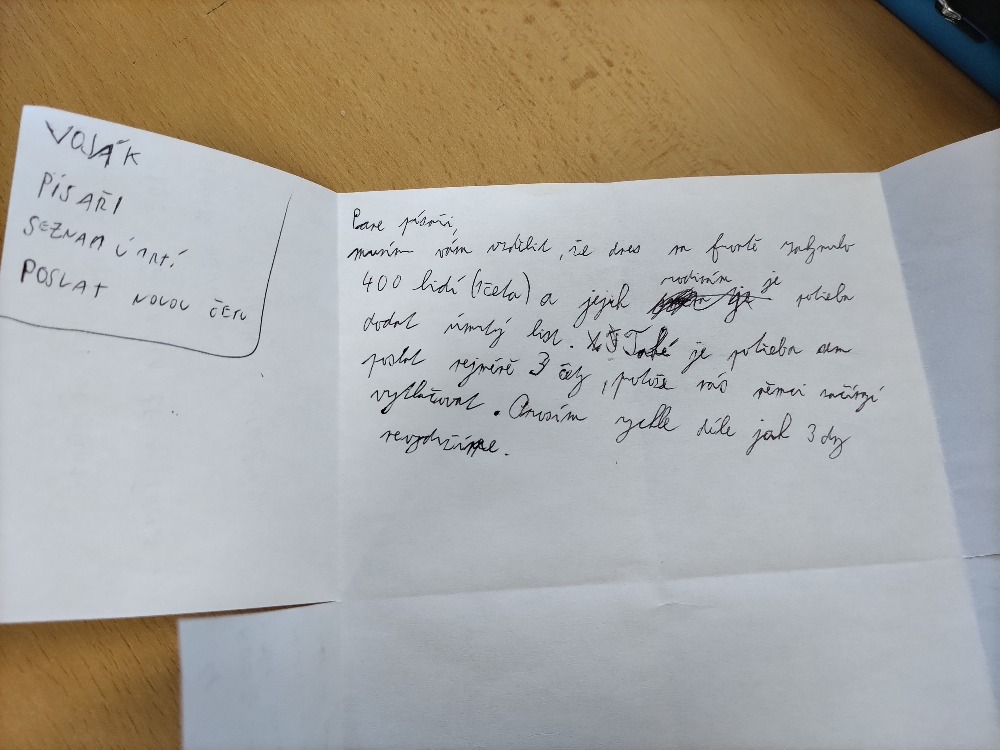 VOJÁK
PÍSAŘI
SEZNAM ÚMRTÍ
POSLAT NOVOU ČETU
Pane písaři,
musím vám vzdělit, že dnes na frontě zahynulo
400 lidí (1četa) a jejich rodinám je potřeba
dodat úmrtý list. Také je potřeba sem
poslat nejméně 3 čety, protože nás němci začínají
vytlačovat. Prosím rychle déle jak 3 dny
nevydržíme.